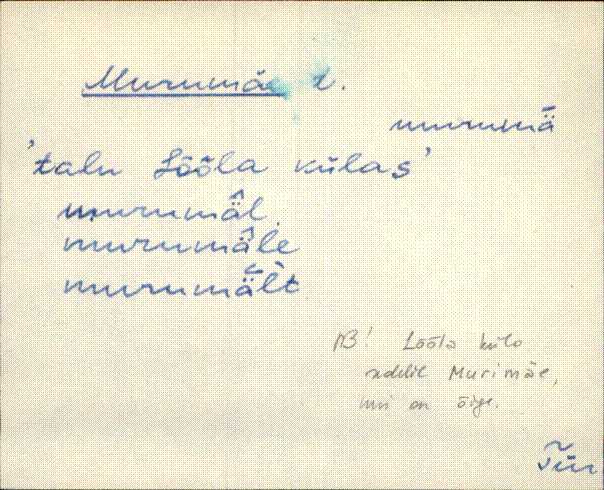 Murumäe t.
murumǟ
'talu Lõõla külas'
murumä̂l
murumä̂le
murumä̆l̀t
NB! Lõõla küla
sedelil Murimäe,
mis on õige.
Tür